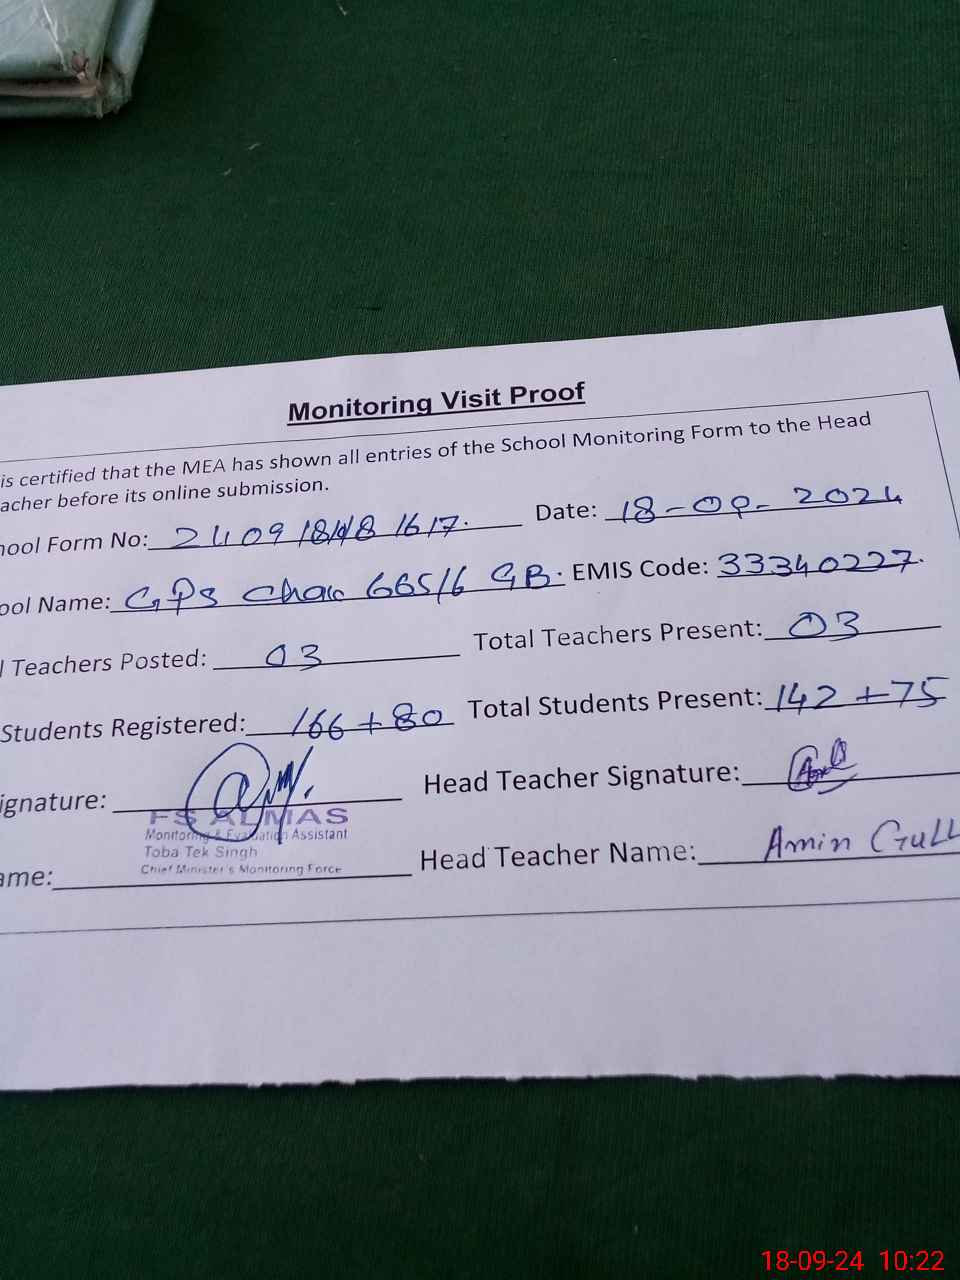 Monitoring Visit Proof
is certified that the MEA has shown all entries of the School Monitoring Form to the Head
acher before its online submission.
hool Form No: 2409 18 1617. Date: 18-09-2024
ool Name: GPS Chak 665/6 GB. EMIS Code: 33340227.
l Teachers Posted: 03 Total Teachers Present: 03
Students Registered: 166+80 Total Students Present: 142+75
ignature: Head Teacher Signature:
FS ALMAS
Monitoring & Evaluation Assistant
Toba Tek Singh
Chief Minister's Monitoring Force
ame: Head Teacher Name: Amin GULL
18-09-24 10:22